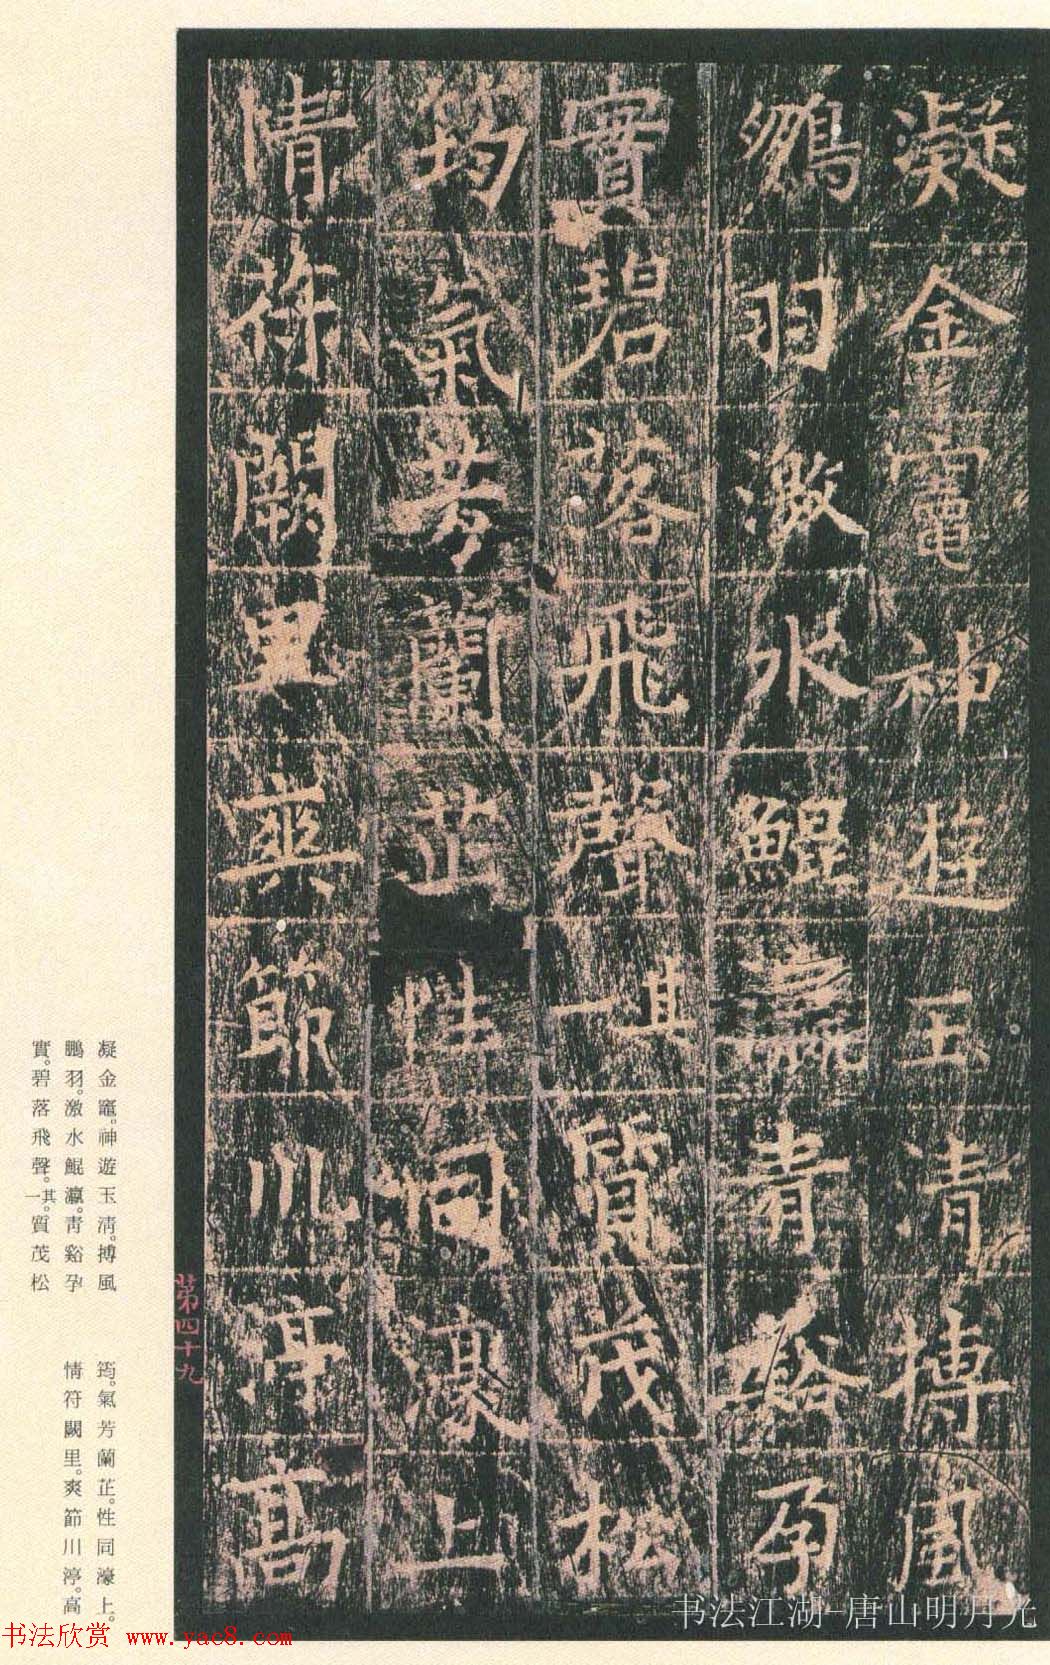 凝金竈神遊玉清搏風
鵬羽激水鯤瀛青谿孕
實碧落飛聲其一質茂松
筠氣芳蘭芷性同濠上
情符闕里爽節川渟高
第四十九
凝金竈。神遊玉清。搏風
鵬羽。激水鯤瀛。青谿孕
實。碧落飛聲。其一。質茂松
筠。氣芳蘭芷。性同濠上。
情符闕里。爽節川渟。高
书法江湖-唐山明月光
书法欣赏 www.yac8.com